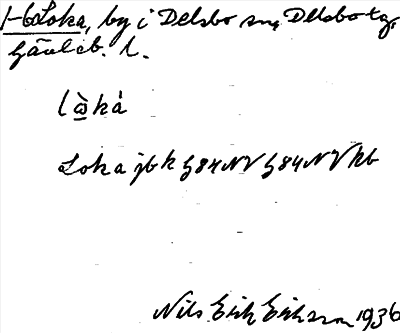 1-6 Loka, by i Delsbo sn, Delsbo tg,
Gävleb. l.
lò̱kȧ
Loka jbk G84NV G84NV kb
Nils Erik Eriksson 1936